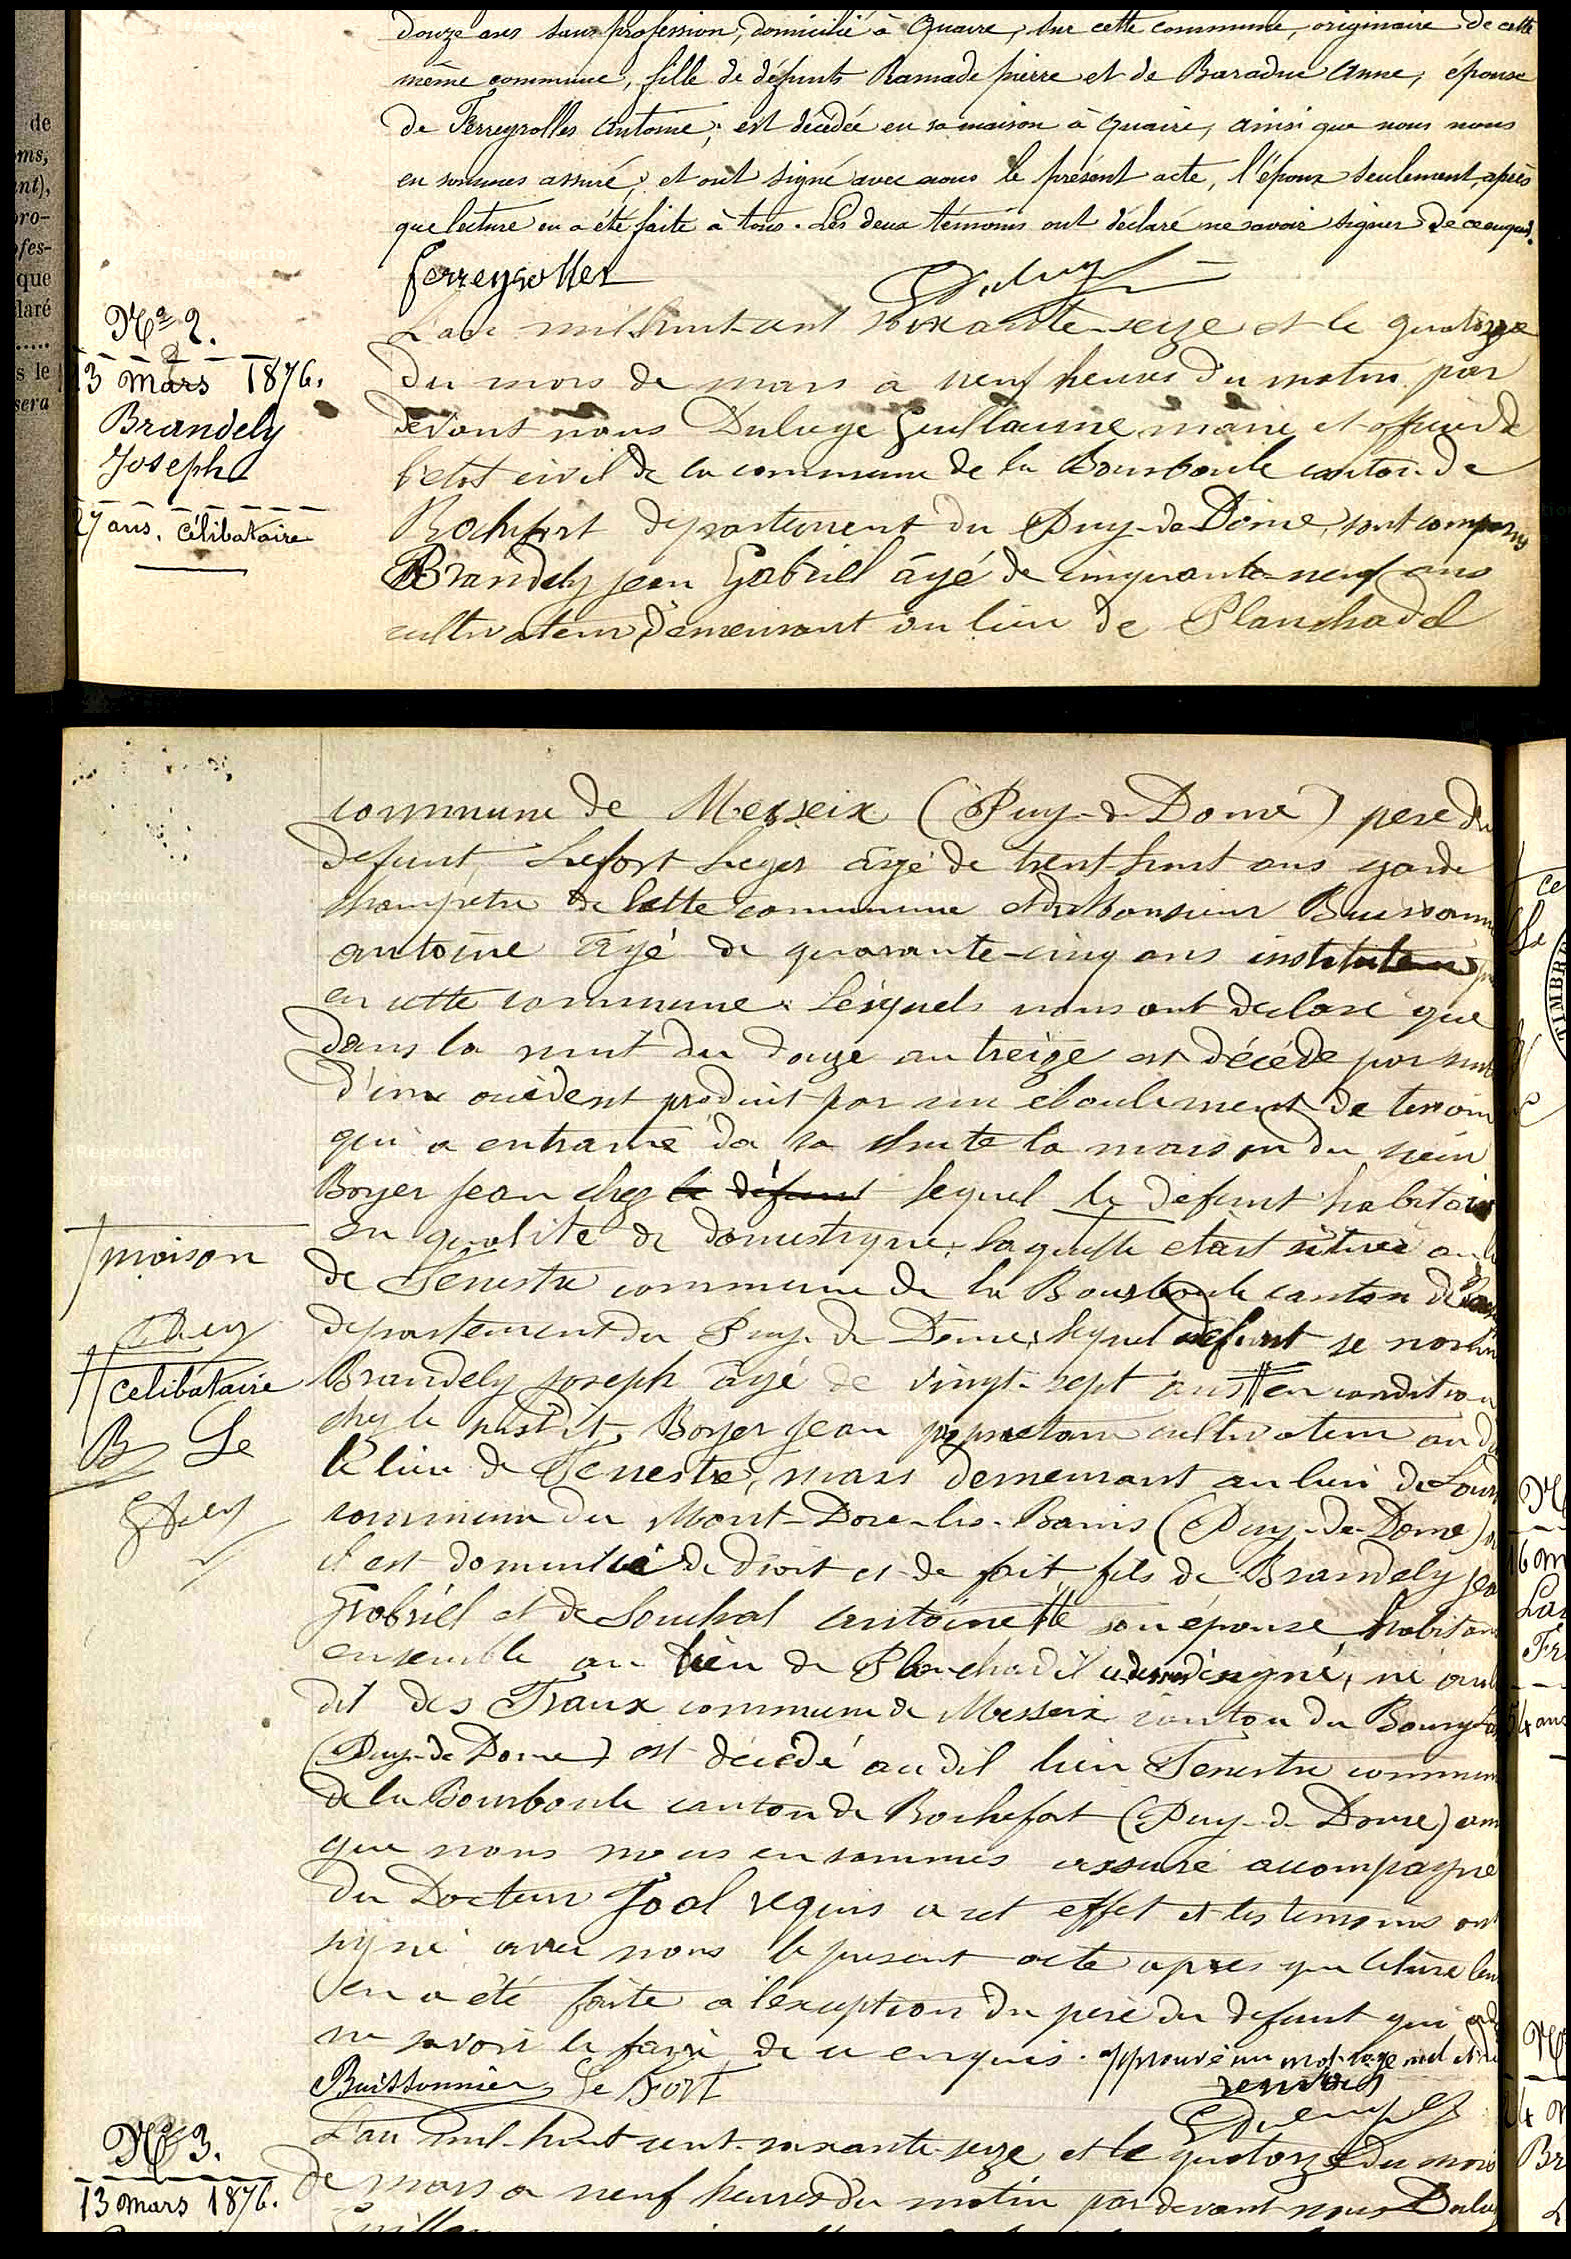 douze ans sans profession, domicilié à Quaire, sur cette commune, originaire de cette
même commune, fille de défunts Ramade pierre et de Baraduc Anne, épouse
de Ferreyrolles Antoine, est décédée en sa maison à Quaire, ainsi que nous nous
en sommes assuré, et ont signé avec nous le présent acte, l'époux seulement, après
que lecture en a été faite à tous. Les deux témoins ont déclaré ne savoir signer de ce enquis.
ferreyrolles
de
oms,
ant),
pro-
ofes-
que
laré
.....
s le
sera
No 2.
13 mars 1876.
Brandely
Joseph
27 ans, célibataire
L'an mil huit cent soixante-seize et le quatorze
du mois de mars à neuf heures du matin par
devant nous Duliege Guillaume maire et officier de
l'etat civil de la commune de la Bourboule canton de
Rochefort departement du Puy-de-Dome, sont comparus
Brandely jean Gabriel âgé de cinquante-neuf ans
cultivateur demeurant au lieu de Planchadel
commune de Messeix (Puy-de-Dome) pere du
defunt, Lefort Leger âgé de trent huit ans garde
champetre de cette commune et
antoine âgé de quarante-cinq ans instituteur
en cette commune. Lesquels nous ont declaré que
dans la nuit du douze au treize est décédé par suite
d'un accident produit par un eboulement de terrain
qui a entrainé da sa chute la maison du sieur
Boyer jean chez le défunt lequel le defunt habitait
en qualité de domestique, laquelle etait située au
de Fenestre commune de la Bourboule canton de
departement du Puy-de-Dome, lequel defunt se nomme
Brandely joseph âgé de vingt-sept ans en condition
chez le susdit Boyer jean proprietaire cultivateur au dit
le lieu de Fenestre, mais demeurant au lieu de
commune du Mont-Dore-les-Bains (Puy-de-Dome)
il est domicilié de droit et de fait, fils de Brandely jean
Gabriel et de Souchal antoinette son épouse habitant
ensemble au lieu de Planchadil designé, né au
dit des Traux commune de Messeix canton du Bourg-
(Puy-de-Dome) est décédé au dit lieu Fenestre commune
de la Bourboule canton de Rochefort (Puy-de-Dome)
que nous nous en sommes assuré accompagné
du Docteur Joal requis a cet effet et les temoins ont
signé avec nous le present acte apres que lecture leur
en a été faite a l'exception du pere du defunt qui a
ne savoir le faire de ce enquis. approuvé un mot rayé nul et
renvois
maison
celibataire
B Le
Buissonnier Le Fort
No 3.
13 mars 1876.
L'an mil-huit cent-soixante-seize et le quatorze du mois
de mars a neuf heures du matin par devant nous
©Reproduction
réservée
TIMBRE